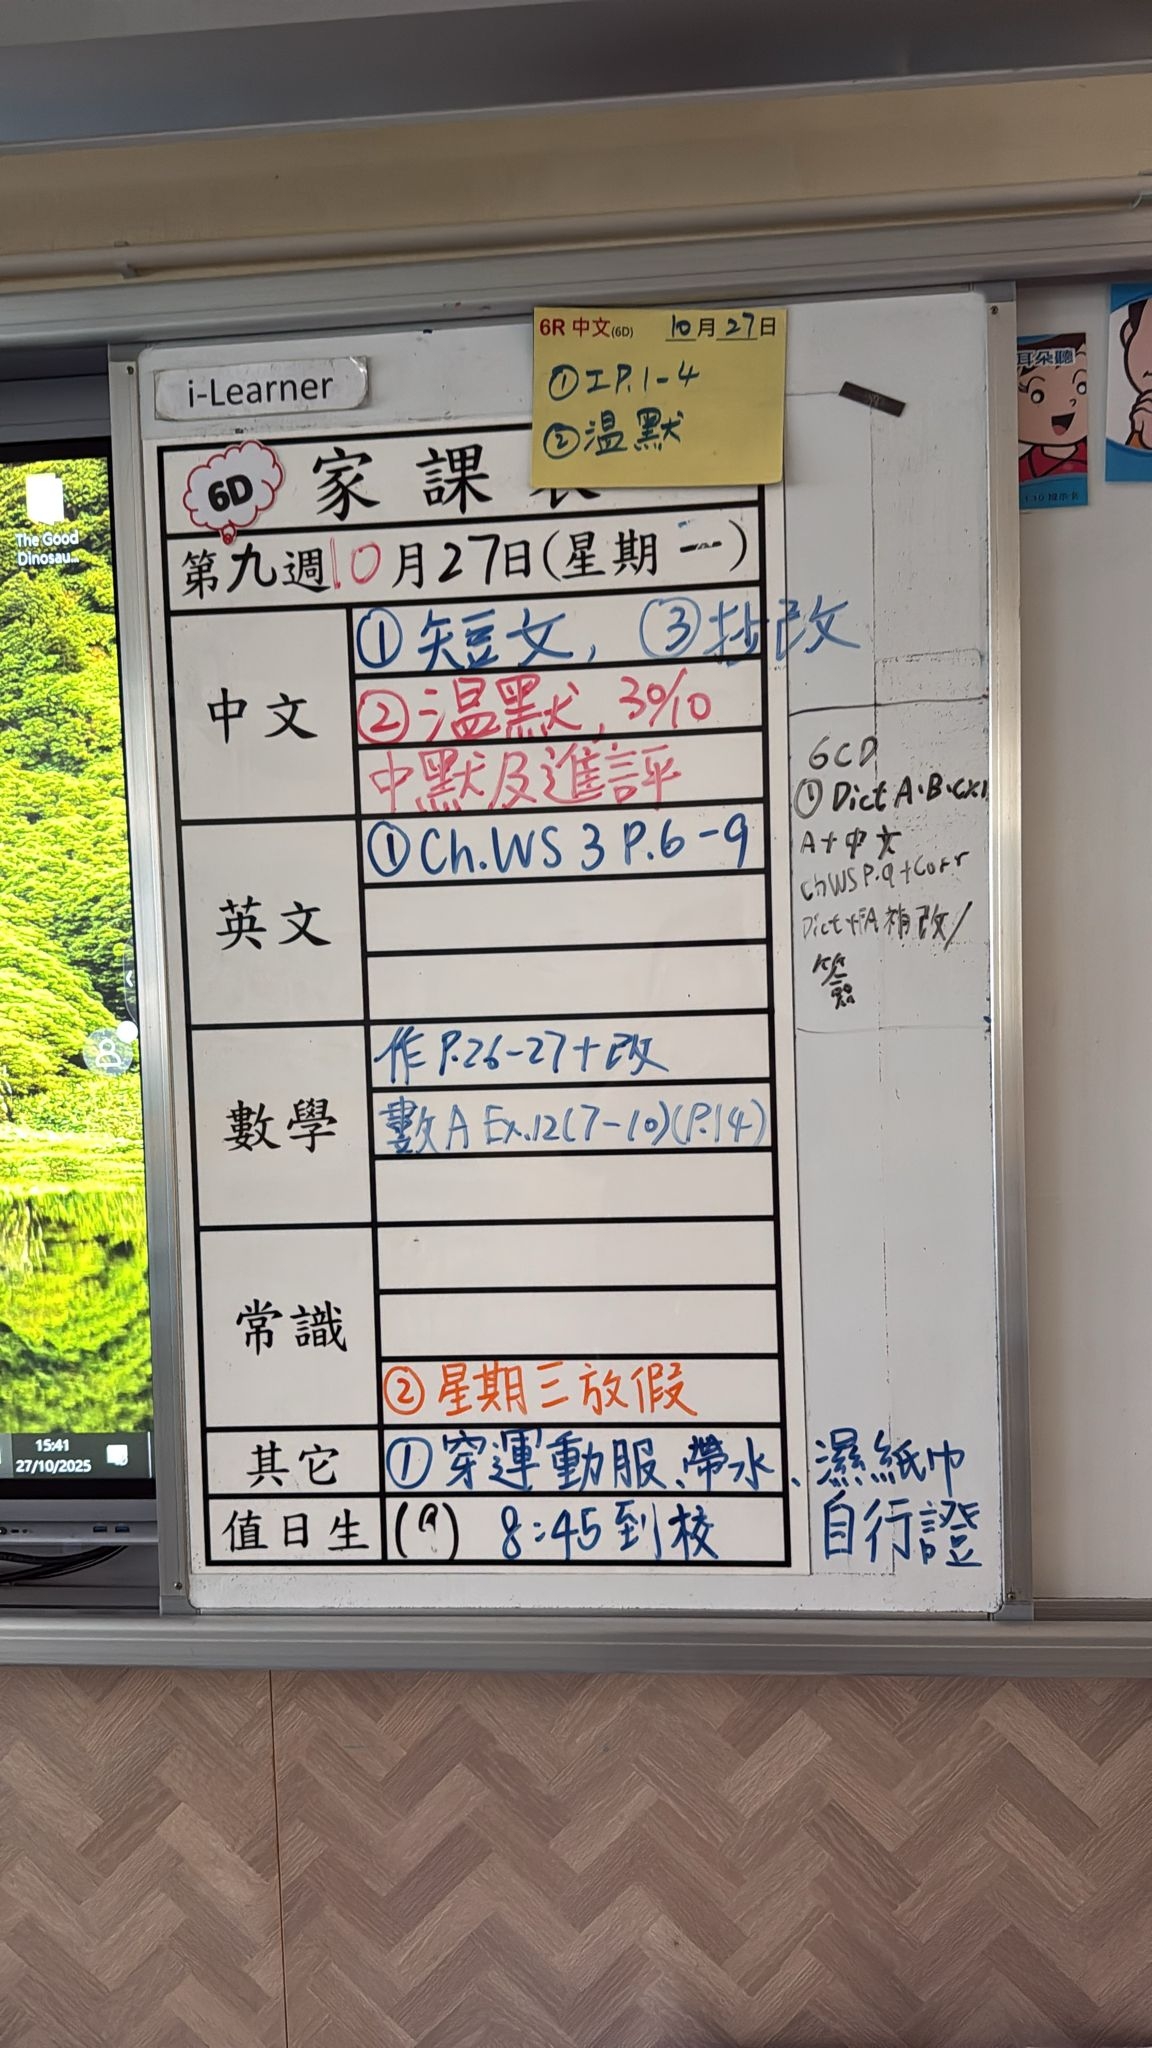 6R 中文(6D) 10月27日
①工P.1-4
②温默
i-Learner
6D 家課
第九週10月27日(星期一)
中文
①短文, ③抄改
②温默, 30/10
中默及進評
英文
①Ch.WS 3 P.6-9
數學
作P.26-27+改
數A Ex.12(7-10)(P.14)
常識
②星期三放假
其它
①穿運動服、帶水、濕紙巾
值日生
(9) 8:45到校 自行證
6CD
①Dict A.B.
A+中文
ChWS P.9+Corr
Dict 補改/
簽
The Good
Dinosau...
15:41
27/10/2025
耳朵聽